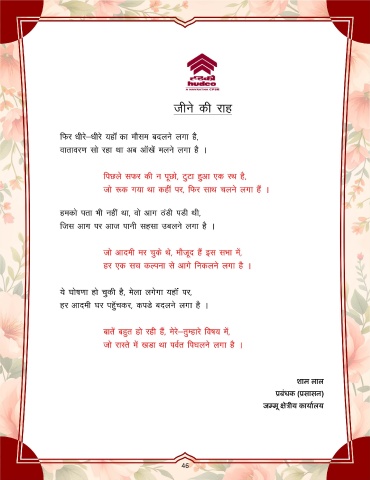 हडको
hudco
जीने की राह
फिर धीरे-धीरे यहाँ का मौसम बदलने लगा है,
वातावरण सो रहा था अब आँखें मलने लगा है ।
पिछले सफर की न पूछो, टुटा हुआ एक रथ है,
जो रूक गया था कहीं पर, फिर साथ चलने लगा हैं ।
हमको पता भी नहीं था, वो आग ठंडी पडी थी,
जिस आग पर आज पानी सहसा उबलने लगा है ।
जो आदमी मर चुके थे, मौजूद हैं इस सभा में,
हर एक सच कल्पना से आगे निकलने लगा है ।
ये घोषणा हो चुकी है, मेला लगेगा यहाँ पर,
हर आदमी घर पहुँचकर, कपडे बदलने लगा है ।
बातें बहुत हो रही हैं, मेरे-तुम्हारे विषय में,
जो रास्ते में खडा था पर्वत पिघलने लगा है ।
शाम लाल
प्रबंधक (प्रसासन)
जम्मू क्षेत्रीय कार्यालय
46